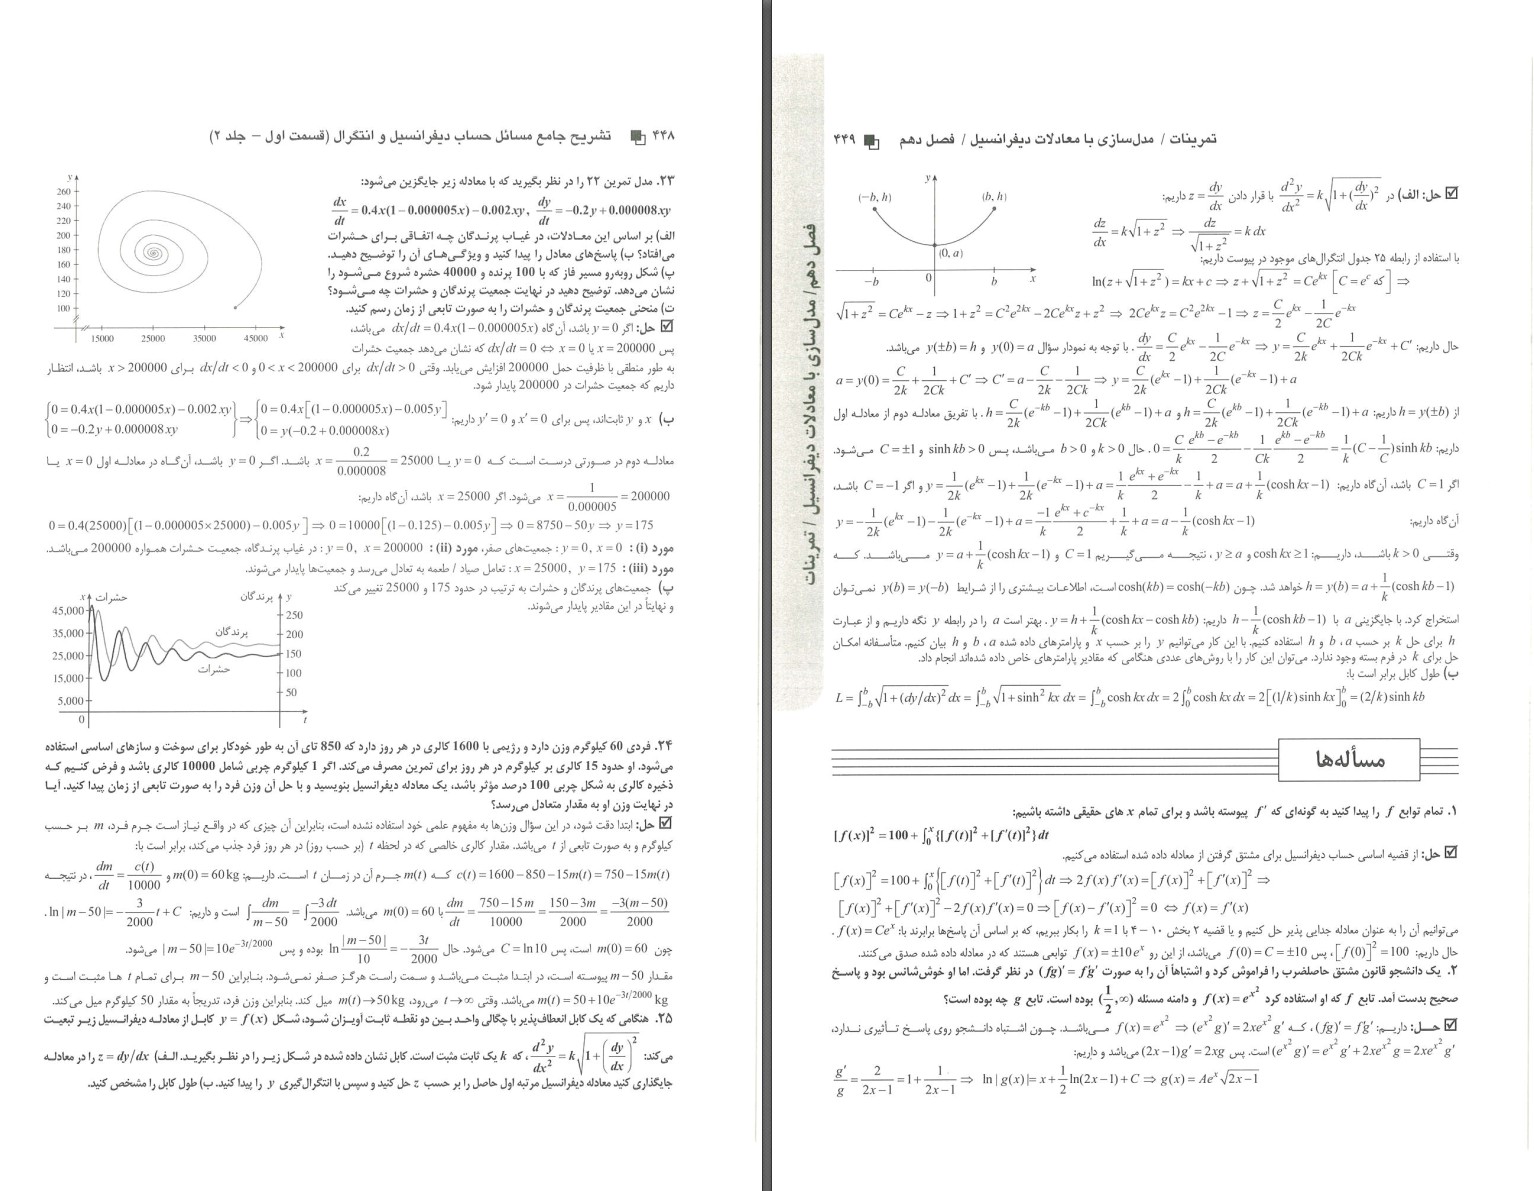 ۴۴۸ تشریح جامع مسائل حساب دیفرانسیل و انتگرال (قسمت اول – جلد ۲)
۲۳. مدل تمرین ۲۲ را در نظر بگیرید که با معادله زیر جایگزین می‌شود:
dx/dt = 0.4x(1−0.000005x) − 0.002xy, dy/dt = −0.2y + 0.000008xy
الف) بر اساس این معادلات، در غیاب پرندگان چه اتفاقی برای حشرات
می‌افتاد؟ ب) پاسخ‌های معادل را پیدا کنید و ویژگی‌های آن را توضیح دهید.
پ) شکل روبه‌رو مسیر فاز که با 100 پرنده و 40000 حشره شروع می‌شود را
نشان می‌دهد. توضیح دهید در نهایت جمعیت پرندگان و حشرات چه می‌شود؟
ت) منحنی جمعیت پرندگان و حشرات را به صورت تابعی از زمان رسم کنید.
y
260
240
220
200
180
160
140
120
100
15000 25000 35000 45000 x
حل: اگر y = 0 باشد، آن‌گاه dx/dt = 0.4x(1−0.000005x) می‌باشد،
پس x = 200000 یا x = 0 ⇔ dx/dt = 0 که نشان می‌دهد جمعیت حشرات
به طور منطقی با ظرفیت حمل 200000 افزایش می‌یابد. وقتی dx/dt > 0 برای 0 < x < 200000 و dx/dt < 0 برای x > 200000 باشد، انتظار
داریم که جمعیت حشرات در 200000 پایدار شود.
ب) x و y ثابت‌اند، پس برای x′ = 0 و y′ = 0 داریم: {0 = 0.4x(1−0.000005x) − 0.002xy, 0 = −0.2y + 0.000008xy} ⇒ {0 = 0.4x[(1−0.000005x) − 0.005y], 0 = y(−0.2 + 0.000008x)
معادله دوم در صورتی درست است که y = 0 یا x = 0.2/0.000008 = 25000 باشد. اگر y = 0 باشد، آن‌گاه در معادله اول x = 0 یا
x = 1/0.000005 = 200000 می‌شود. اگر x = 25000 باشد، آن‌گاه داریم:
0 = 0.4(25000)[(1−0.000005×25000) − 0.005y] ⇒ 0 = 10000[(1−0.125) − 0.005y] ⇒ 0 = 8750 − 50y ⇒ y = 175
مورد (i): y = 0, x = 0 : جمعیت‌های صفر، مورد (ii): y = 0, x = 200000 : در غیاب پرندگاه، جمعیت حشرات همواره 200000 می‌باشد.
مورد (iii): x = 25000, y = 175 : تعامل صیاد / طعمه به تعادل می‌رسد و جمعیت‌ها پایدار می‌شوند.
پ) جمعیت‌های پرندگان و حشرات به ترتیب در حدود 175 و 25000 تغییر می‌کند
و نهایتاً در این مقادیر پایدار می‌شوند.
x حشرات پرندگان y
45,000 250
35,000 200
25,000 150
15,000 100
5,000 50
پرندگان
حشرات
0 t
۲۴. فردی 60 کیلوگرم وزن دارد و رژیمی با 1600 کالری در هر روز دارد که 850 تای آن به طور خودکار برای سوخت و سازهای اساسی استفاده
می‌شود. او حدود 15 کالری بر کیلوگرم در هر روز برای تمرین مصرف می‌کند. اگر 1 کیلوگرم چربی شامل 10000 کالری باشد و فرض کنیم که
ذخیره کالری به شکل چربی 100 درصد مؤثر باشد، یک معادله دیفرانسیل بنویسید و با حل آن وزن فرد را به صورت تابعی از زمان پیدا کنید. آیا
در نهایت وزن او به مقدار متعادل می‌رسد؟
حل: ابتدا دقت شود، در این سؤال وزن‌ها به مفهوم علمی خود استفاده نشده است، بنابراین آن چیزی که در واقع نیاز است جرم فرد، m بر حسب
کیلوگرم و به صورت تابعی از t می‌باشد. مقدار کالری خالصی که در لحظه t (بر حسب روز) در هر روز فرد جذب می‌کند، برابر است با:
c(t) = 1600 − 850 − 15m(t) = 750 − 15m(t) که m(t) جرم آن در زمان t است. داریم: m(0) = 60 kg و dm/dt = c(t)/10000، در نتیجه
dm/dt = (750−15m)/10000 = (150−3m)/2000 = −3(m−50)/2000 با m(0) = 60 می‌باشد. ∫dm/(m−50) = ∫−3dt/2000 است و داریم: ln|m−50| = −(3/2000)t + C.
چون m(0) = 60 است، پس C = ln10 می‌شود. حال ln(|m−50|/10) = −3t/2000 بوده و پس |m−50| = 10e^(−3t/2000) می‌شود.
مقدار m−50 پیوسته است، در ابتدا مثبت می‌باشد و سمت راست هرگز صفر نمی‌شود. بنابراین m−50 برای تمام t ها مثبت است و
m(t) = 50 + 10e^(−3t/2000) kg می‌باشد. وقتی t → ∞ می‌رود، m(t) → 50 kg میل کند. بنابراین وزن فرد، تدریجاً به مقدار 50 کیلوگرم میل می‌کند.
۲۵. هنگامی که یک کابل انعطاف‌پذیر با چگالی واحد بین دو نقطه ثابت آویزان شود، شکل y = f(x) کابل از معادله دیفرانسیل زیر تبعیت
می‌کند: d²y/dx² = k√(1+(dy/dx)²)، که k یک ثابت مثبت است. کابل نشان داده شده در شکل زیر را در نظر بگیرید. الف) z = dy/dx را در معادله
جایگذاری کنید معادله دیفرانسیل مرتبه اول حاصل را بر حسب z حل کنید و سپس با انتگرال‌گیری y را پیدا کنید. ب) طول کابل را مشخص کنید.
تمرینات / مدل‌سازی با معادلات دیفرانسیل / فصل دهم ۴۴۹
فصل دهم / مدل‌سازی با معادلات دیفرانسیل / تمرینات
y
(−b, h) (b, h)
(0, a)
−b 0 b x
حل: الف) در d²y/dx² = k√(1+(dy/dx)²) با قرار دادن z = dy/dx داریم:
dz/dx = k√(1+z²) ⇒ dz/√(1+z²) = k dx
با استفاده از رابطه ۲۵ جدول انتگرال‌های موجود در پیوست داریم:
ln(z+√(1+z²)) = kx + c ⇒ z+√(1+z²) = Ce^(kx) [C = e^c که] ⇒
√(1+z²) = Ce^(kx) − z ⇒ 1+z² = C²e^(2kx) − 2Ce^(kx)z + z² ⇒ 2Ce^(kx)z = C²e^(2kx) − 1 ⇒ z = (C/2)e^(kx) − (1/2C)e^(−kx)
حال داریم: dy/dx = (C/2)e^(kx) − (1/2C)e^(−kx) ⇒ y = (C/2k)e^(kx) + (1/2Ck)e^(−kx) + C′. با توجه به نمودار سؤال y(0) = a و y(±b) = h می‌باشد.
a = y(0) = C/2k + 1/2Ck + C′ ⇒ C′ = a − C/2k − 1/2Ck ⇒ y = (C/2k)(e^(kx)−1) + (1/2Ck)(e^(−kx)−1) + a
از h = y(±b) داریم: h = (C/2k)(e^(kb)−1) + (1/2Ck)(e^(−kb)−1) + a و h = (C/2k)(e^(−kb)−1) + (1/2Ck)(e^(kb)−1) + a. با تفریق معادله دوم از معادله اول
داریم: 0 = (C/k)(e^(kb)−e^(−kb))/2 − (1/Ck)(e^(kb)−e^(−kb))/2 = (1/k)(C − 1/C) sinh kb. حال k > 0 و b > 0 می‌باشد، پس sinh kb > 0 و C = ±1 می‌شود.
اگر C = 1 باشد، آن‌گاه داریم: y = (1/2k)(e^(kx)−1) + (1/2k)(e^(−kx)−1) + a = (1/k)(e^(kx)+e^(−kx))/2 − 1/k + a = a + (1/k)(cosh kx − 1) و اگر C = −1 باشد،
آن‌گاه داریم: y = −(1/2k)(e^(kx)−1) − (1/2k)(e^(−kx)−1) + a = (−1/k)(e^(kx)+c^(−kx))/2 + 1/k + a = a − (1/k)(cosh kx − 1)
وقتی k > 0 باشد، داریم: cosh kx ≥ 1 و y ≥ a، نتیجه می‌گیریم C = 1 و y = a + (1/k)(cosh kx − 1) می‌باشد. که
h = y(b) = a + (1/k)(cosh kb − 1) خواهد شد. چون cosh(kb) = cosh(−kb) است، اطلاعات بیشتری را از شرایط y(b) = y(−b) نمی‌توان
استخراج کرد. با جایگزینی a با h − (1/k)(cosh kb − 1) داریم: y = h + (1/k)(cosh kx − cosh kb). بهتر است a را در رابطه y نگه داریم و از عبارت
h برای حل k بر حسب a، b و h استفاده کنیم. با این کار می‌توانیم y را بر حسب x و پارامترهای داده شده a، b و h بیان کنیم. متأسفانه امکان
حل برای k در فرم بسته وجود ندارد. می‌توان این کار را با روش‌های عددی هنگامی که مقادیر پارامترهای خاص داده شده‌اند انجام داد.
ب) طول کابل برابر است با:
L = ∫_{−b}^{b} √(1+(dy/dx)²) dx = ∫_{−b}^{b} √(1+sinh² kx) dx = ∫_{−b}^{b} cosh kx dx = 2∫_0^b cosh kx dx = 2[(1/k) sinh kx]_0^b = (2/k) sinh kb
مسأله‌ها
۱. تمام توابع f را پیدا کنید به گونه‌ای که f′ پیوسته باشد و برای تمام x های حقیقی داشته باشیم:
[f(x)]² = 100 + ∫_0^x {[f(t)]² + [f′(t)]²} dt
حل: از قضیه اساسی حساب دیفرانسیل برای مشتق گرفتن از معادله داده شده استفاده می‌کنیم.
[f(x)]² = 100 + ∫_0^x {[f(t)]² + [f′(t)]²} dt ⇒ 2f(x)f′(x) = [f(x)]² + [f′(x)]² ⇒
[f(x)]² + [f′(x)]² − 2f(x)f′(x) = 0 ⇒ [f(x) − f′(x)]² = 0 ⇔ f(x) = f′(x)
می‌توانیم آن را به عنوان معادله جدایی پذیر حل کنیم و یا قضیه ۲ بخش ۱۰ – ۴ با k = 1 را بکار ببریم، که بر اساس آن پاسخ‌ها برابرند با: f(x) = Ce^x.
حال داریم: [f(0)]² = 100، پس f(0) = C = ±10 می‌باشد، از این رو f(x) = ±10e^x توابعی هستند که در معادله داده شده صدق می‌کنند.
۲. یک دانشجو قانون مشتق حاصلضرب را فراموش کرد و اشتباهاً آن را به صورت (fg)′ = f′g′ در نظر گرفت. اما او خوش‌شانس بود و پاسخ
صحیح بدست آمد. تابع f که او استفاده کرد f(x) = e^(x²) و دامنه مسئله (1/2, ∞) بوده است. تابع g چه بوده است؟
حل: داریم: (fg)′ = f′g′، که f(x) = e^(x²) ⇒ (e^(x²)g)′ = 2xe^(x²)g′ می‌باشد. چون اشتباه دانشجو روی پاسخ تأثیری ندارد،
(e^(x²)g)′ = e^(x²)g′ + 2xe^(x²)g = 2xe^(x²)g′ است. پس (2x−1)g′ = 2xg می‌باشد و داریم:
g′/g = 2/(2x−1) = 1 + 1/(2x−1) ⇒ ln|g(x)| = x + (1/2)ln(2x−1) + C ⇒ g(x) = Ae^x√(2x−1)